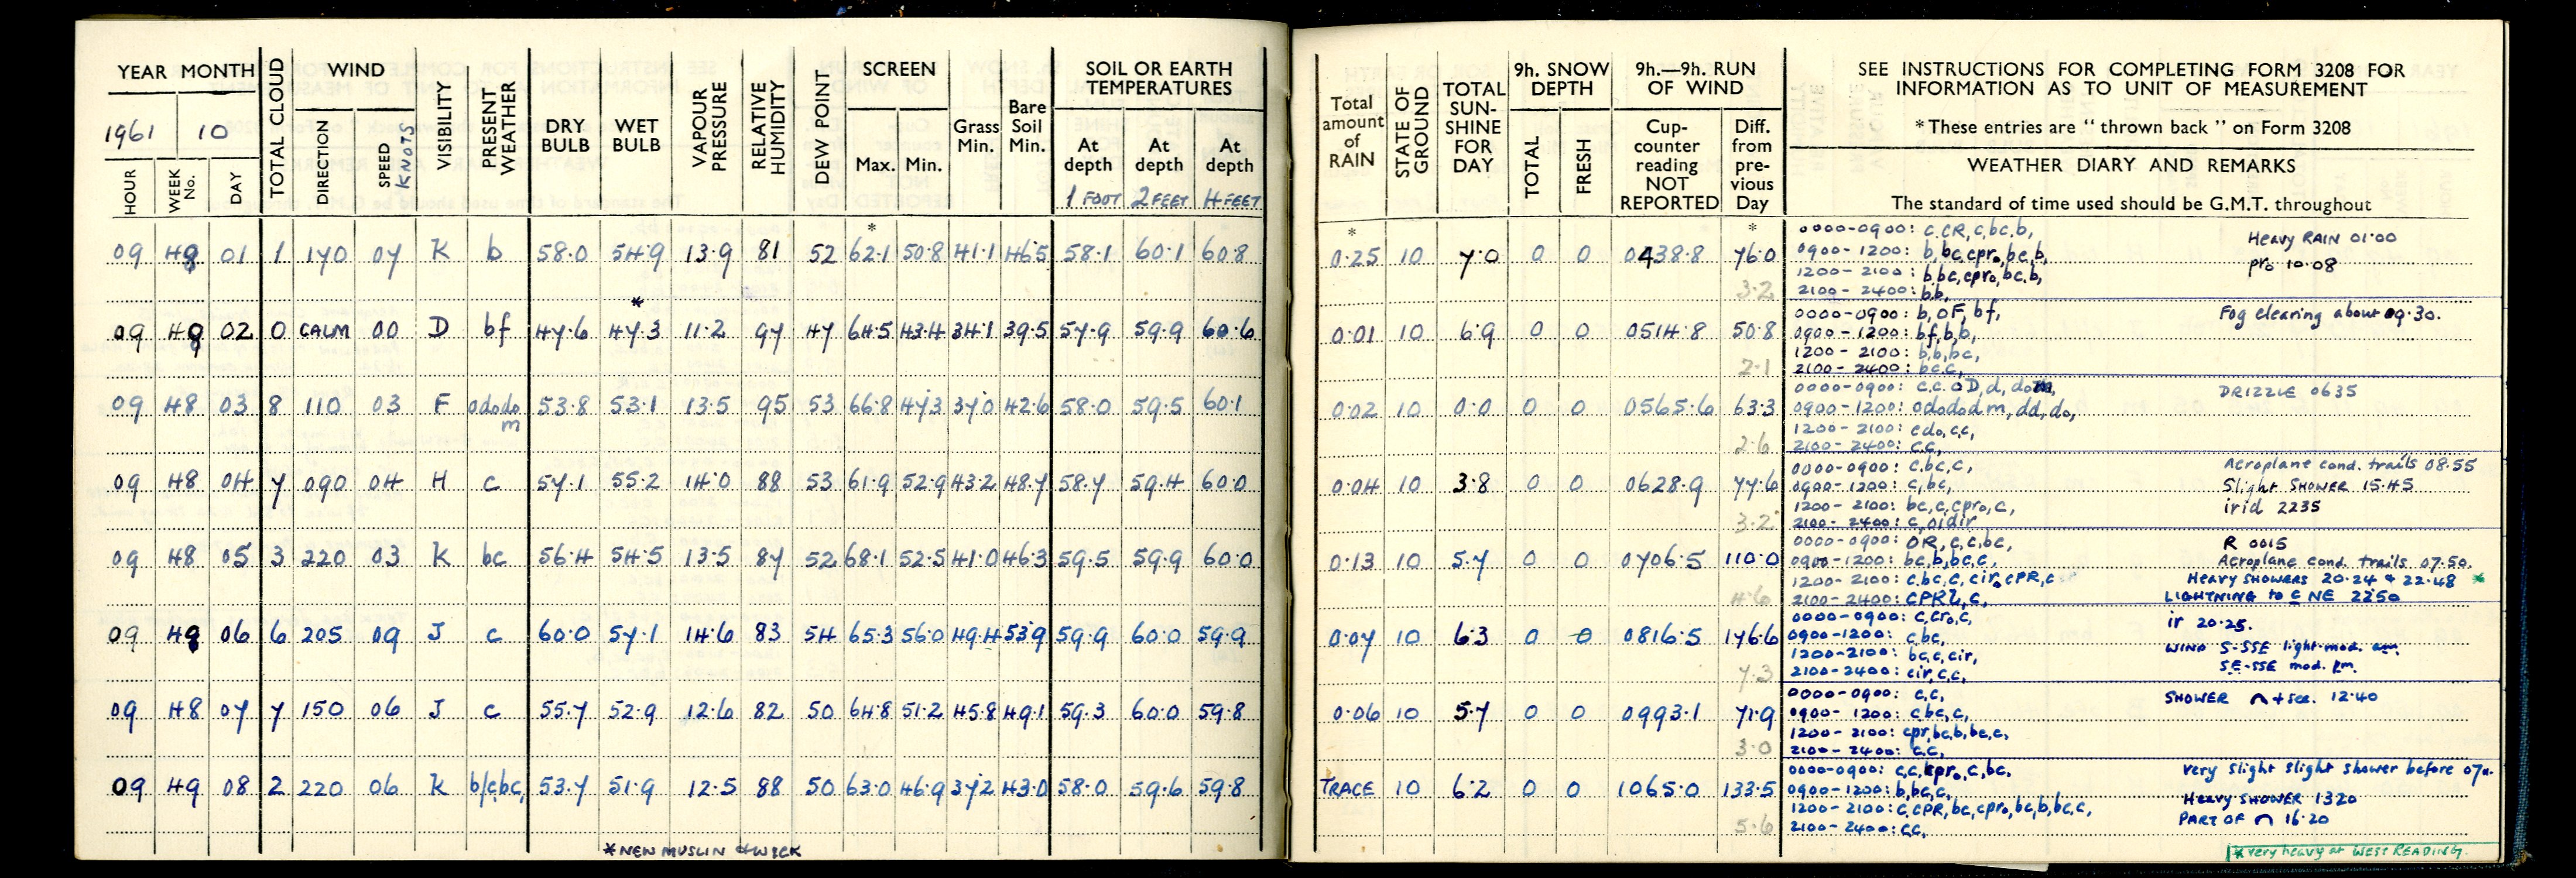 YEAR MONTH
1961 10
HOUR WEEK No. DAY TOTAL CLOUD WIND DIRECTION SPEED KNOTS VISIBILITY PRESENT WEATHER DRY BULB WET BULB VAPOUR PRESSURE RELATIVE HUMIDITY DEW POINT SCREEN Max. Min. Grass Min. Bare Soil Min. SOIL OR EARTH TEMPERATURES At depth 1 FOOT At depth 2 FEET At depth 4 FEET
* *
09 48 01 1 170 07 K b 58.0 54.9 13.9 81 52 62.1 50.8 41.1 46.5 58.1 60.1 60.8
*
09 48 02 0 CALM 00 D bf 47.6 47.3 11.2 97 47 64.5 43.4 34.1 39.5 57.9 59.9 60.6
09 48 03 8 110 03 F ododo 53.8 53.1 13.5 95 53 66.8 47.3 37.0 42.6 58.0 59.5 60.1
m
09 48 04 7 090 04 H c 57.1 55.2 14.0 88 53 61.9 52.9 43.2 48.7 58.7 59.4 60.0
09 48 05 3 220 03 K bc 56.4 54.5 13.5 87 52 68.1 52.5 41.0 46.3 59.5 59.9 60.0
09 48 06 6 205 09 J c 60.0 57.1 14.6 83 54 65.3 56.0 49.4 53.9 59.9 60.0 59.9
09 48 07 7 150 06 J c 55.7 52.9 12.6 82 50 64.8 51.2 45.8 49.1 59.3 60.0 59.8
09 49 08 2 220 06 K b/cbc, 53.7 51.9 12.5 88 50 63.0 46.9 37.2 43.0 58.0 59.6 59.8
* NEW MUSLIN & WICK
Total amount of RAIN STATE OF GROUND TOTAL SUN-SHINE FOR DAY 9h. SNOW DEPTH TOTAL FRESH 9h.—9h. RUN OF WIND Cup-counter reading NOT REPORTED Diff. from pre-vious Day
SEE INSTRUCTIONS FOR COMPLETING FORM 3208 FOR
INFORMATION AS TO UNIT OF MEASUREMENT
* These entries are " thrown back " on Form 3208
WEATHER DIARY AND REMARKS
The standard of time used should be G.M.T. throughout
* *
0.25 10 7.0 0 0 0438.8 76.0
3.2
0000-0900: c.CR, c,bc.b,
0900-1200: b,bc,cpro,bc,b,
1200-2100: b,bc,cpro,bc,b,
2100-2400: b,b,
Heavy RAIN 01.00
pro 10.08
0.01 10 6.9 0 0 0514.8 50.8
2.1
0000-0900: b, OF, bf,
0900-1200: bf,b,b,
1200-2100: b,b,bc,
2100-2400: bc,c,
Fog clearing about 09.30.
0.02 10 0.0 0 0 0565.6 63.3
2.6
0000-0900: c.c.OD,d,
0900-1200: ododod m, dd,do,
1200-2100: cdo,c,c,
2100-2400: c,c,
DRIZZLE 0635
0.04 10 3.8 0 0 0628.9 77.6
3.2
0000-0900: c,bc,c,
0900-1200: c,bc,
1200-2100: bc,c,cpro,c,
2100-2400: c,oidir
Aeroplane cond. trails 08.55
Slight SHOWER 15.45
irid 2235
0.13 10 5.7 0 0 0706.5 110.0
4.6
0000-0900: OR, c,c,bc,
0900-1200: bc,b,bc,c,
1200-2100: c,bc,c,ciro,CPR,c
2100-2400: CPRL,c,
R 0015
Aeroplane cond. trails 07.50.
Heavy SHOWERS 20.24 & 22.48 *
LIGHTNING to E NE 2250
0.07 10 6.3 0 0 0816.5 176.6
7.3
0000-0900: c,cro,c,
0900-1200: c,bc,
1200-2100: bc,c,cir,
2100-2400: cir,c,c,
ir 20.25.
WIND S-SSE light-mod. am.
SE-SSE mod. pm.
0.06 10 5.7 0 0 0993.1 71.9
3.0
0000-0900: c,c,
0900-1200: c,bc,c,
1200-2100: cpr,bc,b,bc,c,
2100-2400: c,c,
SHOWER ∩ + sec. 12.40
TRACE 10 6.2 0 0 1065.0 133.5
5.6
0000-0900: c,c,cpro,c,bc,
0900-1200: b,bc,c,
1200-2100: c,CPR,bc,cpro,bc,b,bc,c,
2100-2400: c,c,
very slight slight shower before 07
Heavy SHOWER 1320
PART OF ∩ 16.20
* very heavy at WEST READING.